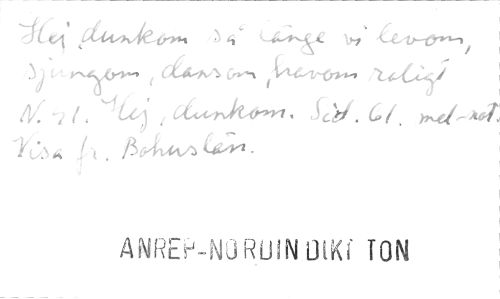 Hej dunkom så länge vi levom,
sjungom, dansom, havom roligt
N. 41. Hej, dunkom. Sid. 61. mel-not.
Visa fr. Bohuslän.
ANREP-NORDIN DIKT TON